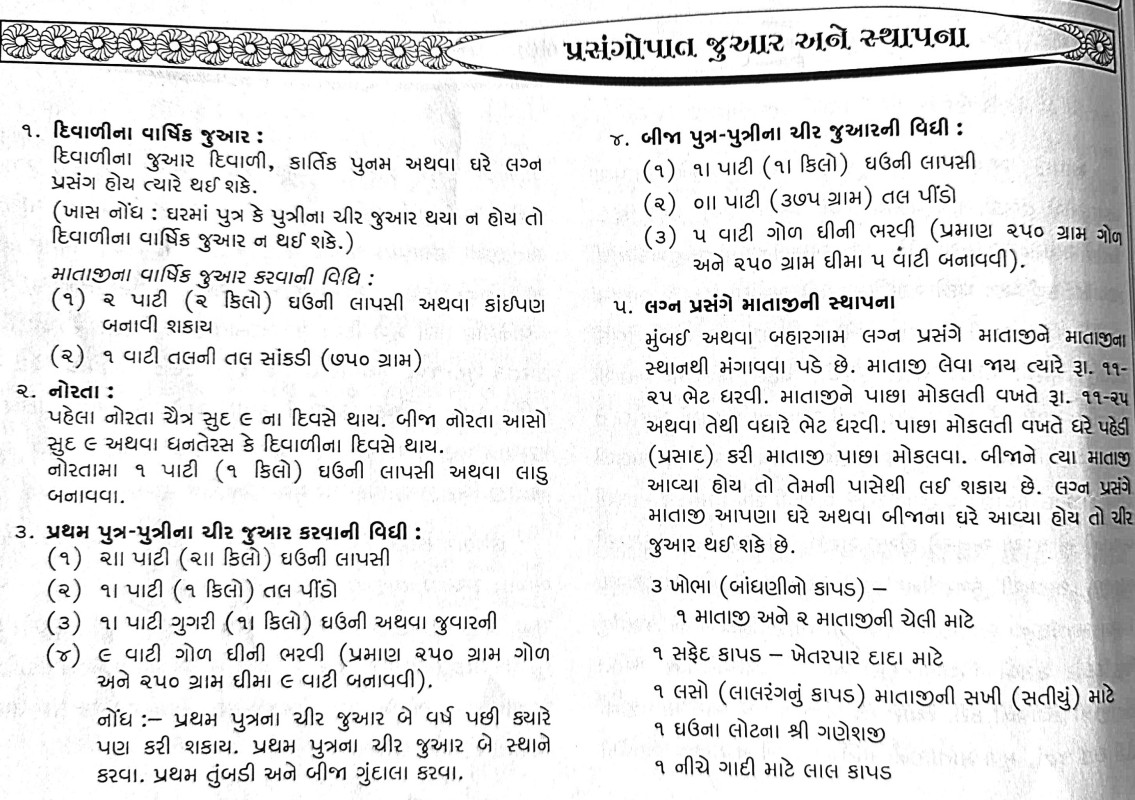 પ્રસંગોપાત જુઆર અને સ્થાપના
૧. દિવાળીના વાર્ષિક જુઆર :
દિવાળીના જુઆર દિવાળી, કાર્તિક પુનમ અથવા ઘરે લગ્ન
પ્રસંગ હોય ત્યારે થઈ શકે.
(ખાસ નોંધ : ઘરમાં પુત્ર કે પુત્રીના ચીર જુઆર થયા ન હોય તો
દિવાળીના વાર્ષિક જુઆર ન થઈ શકે.)
માતાજીના વાર્ષિક જુઆર કરવાની વિધિ :
(૧) ૨ પાટી (૨ કિલો) ઘઉંની લાપસી અથવા કાંઈપણ
બનાવી શકાય
(૨) ૧ વાટી તલની તલ સાંકડી (૭૫૦ ગ્રામ)
૨. નોરતા :
પહેલા નોરતા ચૈત્ર સુદ ૯ ના દિવસે થાય. બીજા નોરતા આસો
સુદ ૯ અથવા ધનતેરસ કે દિવાળીના દિવસે થાય.
નોરતામા ૧ પાટી (૧ કિલો) ઘઉંની લાપસી અથવા લાડુ
બનાવવા.
૩. પ્રથમ પુત્ર-પુત્રીના ચીર જુઆર કરવાની વિધી :
(૧) ૨ાા પાટી (૨ાા કિલો) ઘઉંની લાપસી
(૨) ૧ા પાટી (૧ કિલો) તલ પીંડો
(૩) ૧ા પાટી ગુગરી (૧ા કિલો) ઘઉંની અથવા જુવારની
(૪) ૯ વાટી ગોળ ઘીની ભરવી (પ્રમાણ ૨૫૦ ગ્રામ ગોળ
અને ૨૫૦ ગ્રામ ઘીમા ૯ વાટી બનાવવી).
નોંધ :– પ્રથમ પુત્રના ચીર જુઆર બે વર્ષ પછી ક્યારે
પણ કરી શકાય. પ્રથમ પુત્રના ચીર જુઆર બે સ્થાને
કરવા. પ્રથમ તુંબડી અને બીજા ગુંદાલા કરવા.
૪. બીજા પુત્ર-પુત્રીના ચીર જુઆરની વિધી :
(૧) ૧ા પાટી (૧ા કિલો) ઘઉંની લાપસી
(૨) ૦ાા પાટી (૩૭૫ ગ્રામ) તલ પીંડો
(૩) ૫ વાટી ગોળ ઘીની ભરવી (પ્રમાણ ૨૫૦ ગ્રામ ગોળ
અને ૨૫૦ ગ્રામ ઘીમા ૫ વાટી બનાવવી).
૫. લગ્ન પ્રસંગે માતાજીની સ્થાપના
મુંબઈ અથવા બહારગામ લગ્ન પ્રસંગે માતાજીને માતાજીના
સ્થાનથી મંગાવવા પડે છે. માતાજી લેવા જાય ત્યારે રૂા. ૧૧-
૨૫ ભેટ ધરવી. માતાજીને પાછા મોકલતી વખતે રૂા. ૧૧-૨૫
અથવા તેથી વધારે ભેટ ધરવી. પાછા મોકલતી વખતે ઘરે પહેડી
(પ્રસાદ) કરી માતાજી પાછા મોકલવા. બીજાને ત્યા માતાજી
આવ્યા હોય તો તેમની પાસેથી લઈ શકાય છે. લગ્ન પ્રસંગે
માતાજી આપણા ઘરે અથવા બીજાના ઘરે આવ્યા હોય તો ચીર
જુઆર થઈ શકે છે.
૩ ખોભા (બાંધણીનો કાપડ) –
૧ માતાજી અને ૨ માતાજીની ચેલી માટે
૧ સફેદ કાપડ – ખેતરપાર દાદા માટે
૧ લસો (લાલરંગનું કાપડ) માતાજીની સખી (સતીયું) માટે
૧ ઘઉંના લોટના શ્રી ગણેશજી
૧ નીચે ગાદી માટે લાલ કાપડ